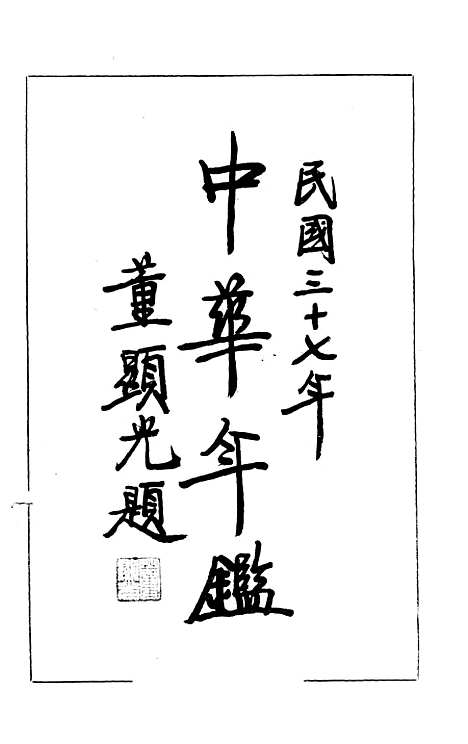 民國三十七年
中華年鑑
董顯光題